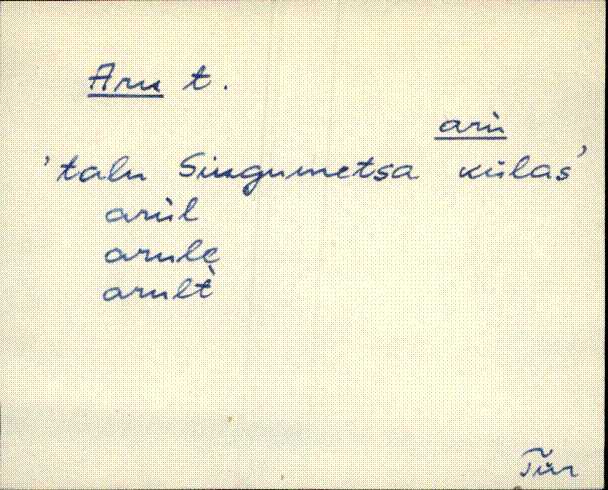 Aru t.
arù
'talu Singumetsa külas'
arùl
arule
arult̀
Tür